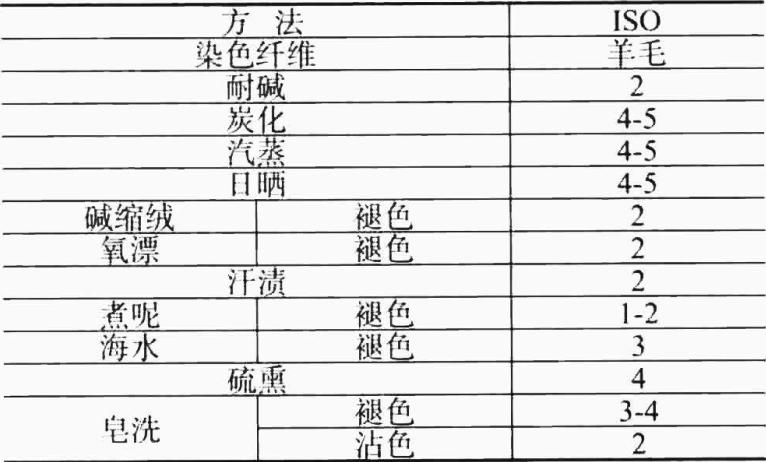 方 法 ISO
染色纤维 羊毛
耐碱 2
炭化 4-5
汽蒸 4-5
日晒 4-5
碱缩绒 褪色 2
氧漂 褪色 2
汗渍 2
煮呢 褪色 1-2
海水 褪色 3
硫熏 4
皂洗 褪色 3-4
沾色 2